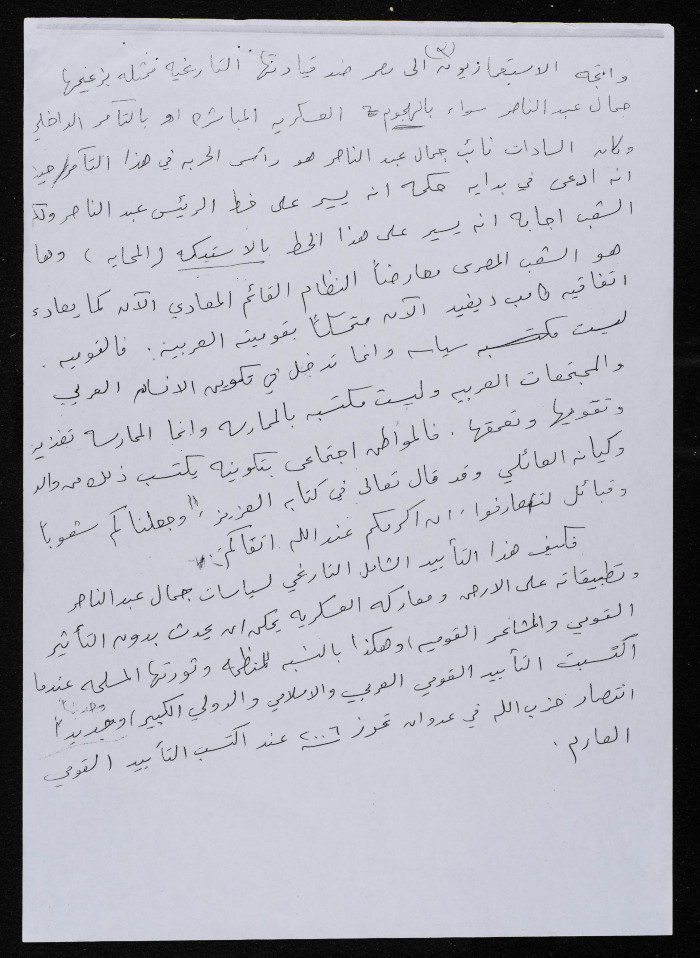 (٣)
واتجه الاستعماريون الى مصر ضد قيادتها التاريخيه ممثله بزعيمها
جمال عبد الناصر سواء بالهجوم العسكريه المباشره او بالتآمر الداخلي
وكان السادات نائب جمال عبد الناصر هو رأس الحربه في هذا التآمر حين
انه ادعى في بدايه حكمه انه يسير على خط الرئيس عبد الناصر ولكن
الشعب اجابه انه يسير على هذا الخط بالاستيكه (المحايه) وها
هو الشعب المصرى معارضاً النظام القائم المعادي الآن كما يعادى
اتفاقيه كامب ديفيد الآن متمسكاً بقوميته العربية. فالقوميه
ليست سياسه وانما تدخل في تكوين الانسان العربي
والمجتمعات العربيه وليست مكتسبه بالممارسه وانما الممارسه تغذيه
وتقويها وتعمقها. فالمواطن اجتماعى بتكوينه يكتسب ذلك من والد
وكيانه العائلي وقد قال تعالى في كتابه العزيز "وجعلناكم شعوباً
وقبائل لتعارفوا، ان اكرمكم عند الله اتقاكم"
فكيف هذا التأييد الشامل التاريخي لسياسات جمال عبد الناصر
وتطبيقاته على الارض ومعاركه العسكريه يمكن ان يحدث بدون التأثير
القومي والمشاعر القوميه، وهكذا بالنسبه للمنظمه وثورتها المسلحه عندما
اكتسبت التأييد القومي العربي والاسلامي والدولي الكبير، وجديداً
انتصار حزب الله في عدوان تموز ٢٠٠٦ عند اكتسب التأييد القومي
العارم.